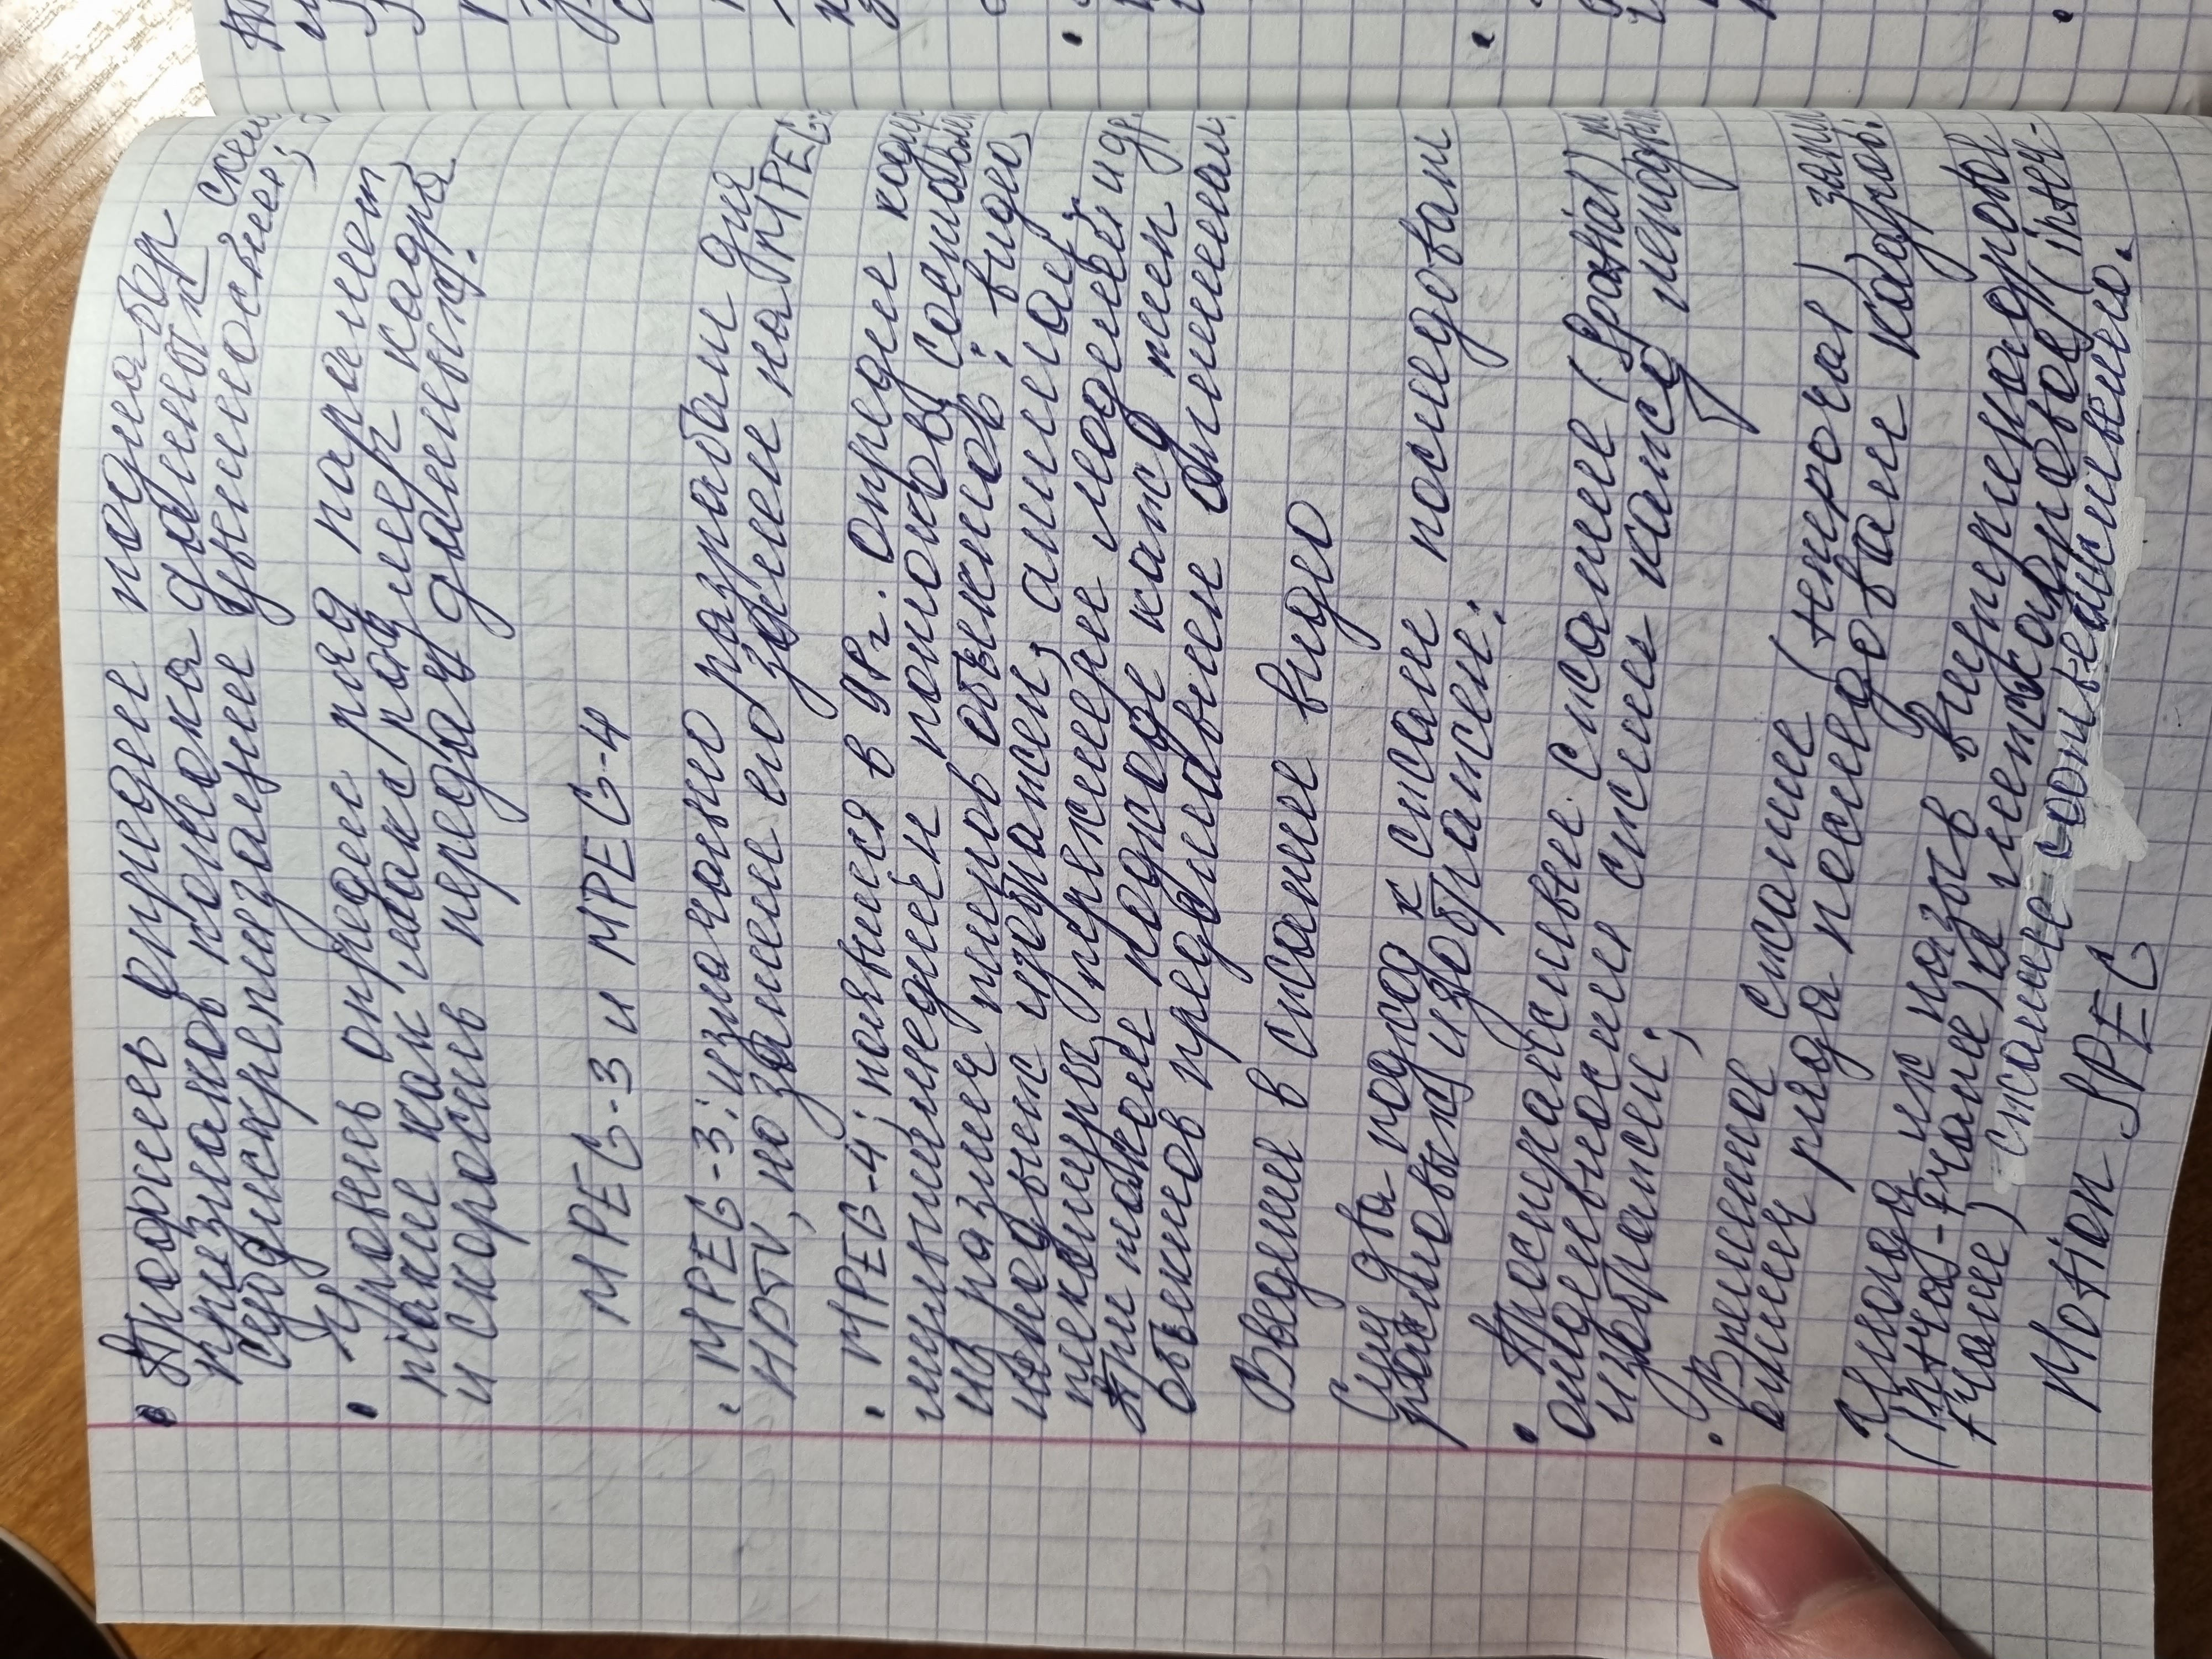 • Профиль определ поднабор
признаков потока данных, схем
субдискретизации цынности;
• Уровень определ ряд парамет,
такие как макс размер кадра
и скорость передач данных.
MPEG-3 и MPEG-4
• MPEG-3: изначально разработ для
HDTV, но затем его замен на MPEG-
• MPEG-4; появился в 98г. Определ кодир
мультимедийн потоков, составлен
из различ типов объектов: видео,
неподвиж изображен, анимац,
текстуры, трехмерн моделей и др.
При таком подходе кажд тип
объектов представлен оптимал.
Введение в сжатие видео
Сущ два подход к сжат последоват
растовых изображен:
• Пространствен. сжатие (Spatial)
отдельности сжати кажд неподвиж
изображен;
• Временное сжатие (temporal), запи
отлич ряда последоват кадров.
Иногда их назыв внутрикадровое
(intra-frame) и межкадровое (inter-
frame) сжатие соответственно.
Motion JPEG